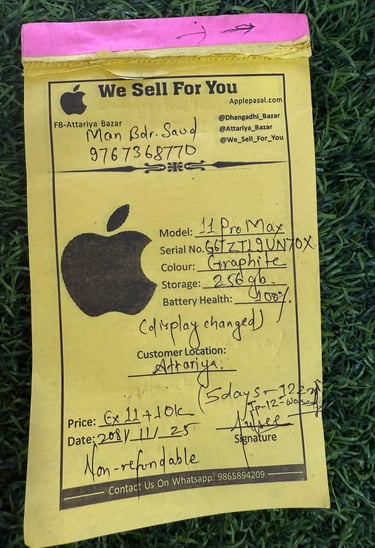 We Sell For You
Applepasal.com
FB-Attariya Bazar
@Dhangadhi_Bazar
Man Bdr. Saud
@Attariya_Bazar
9767368770
@We_Sell_For_You
Model: 11 Pro Max
Serial No. G6TZTL9UN70X
Colour: Graphite
Storage: 256 gb.
Battery Health: 100%.
(display changed)
Customer Location:
Attariya.
(5 days
Price: Ex 11 + 10k
Date: 2081/11/25
Signature
Non-refundable
Contact Us On Whatsapp: 9865894209